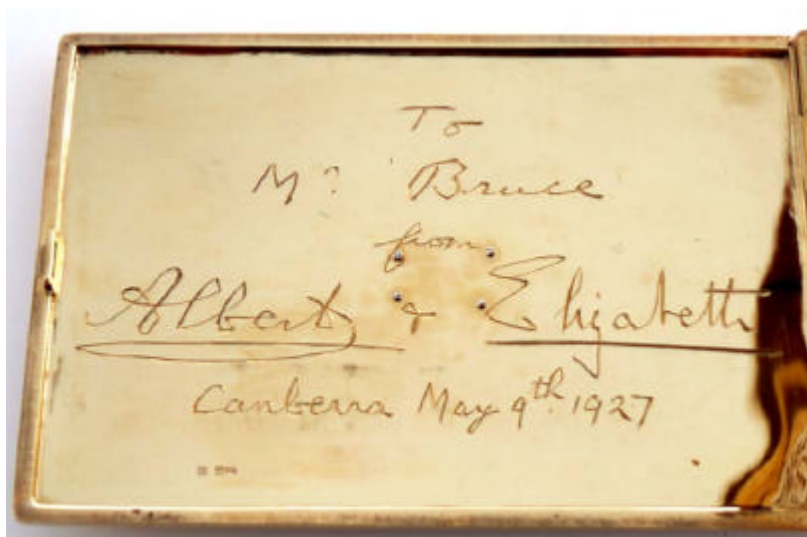 To
Mr Bruce
from
Albert & Elizabeth
Canberra May 9th. 1927